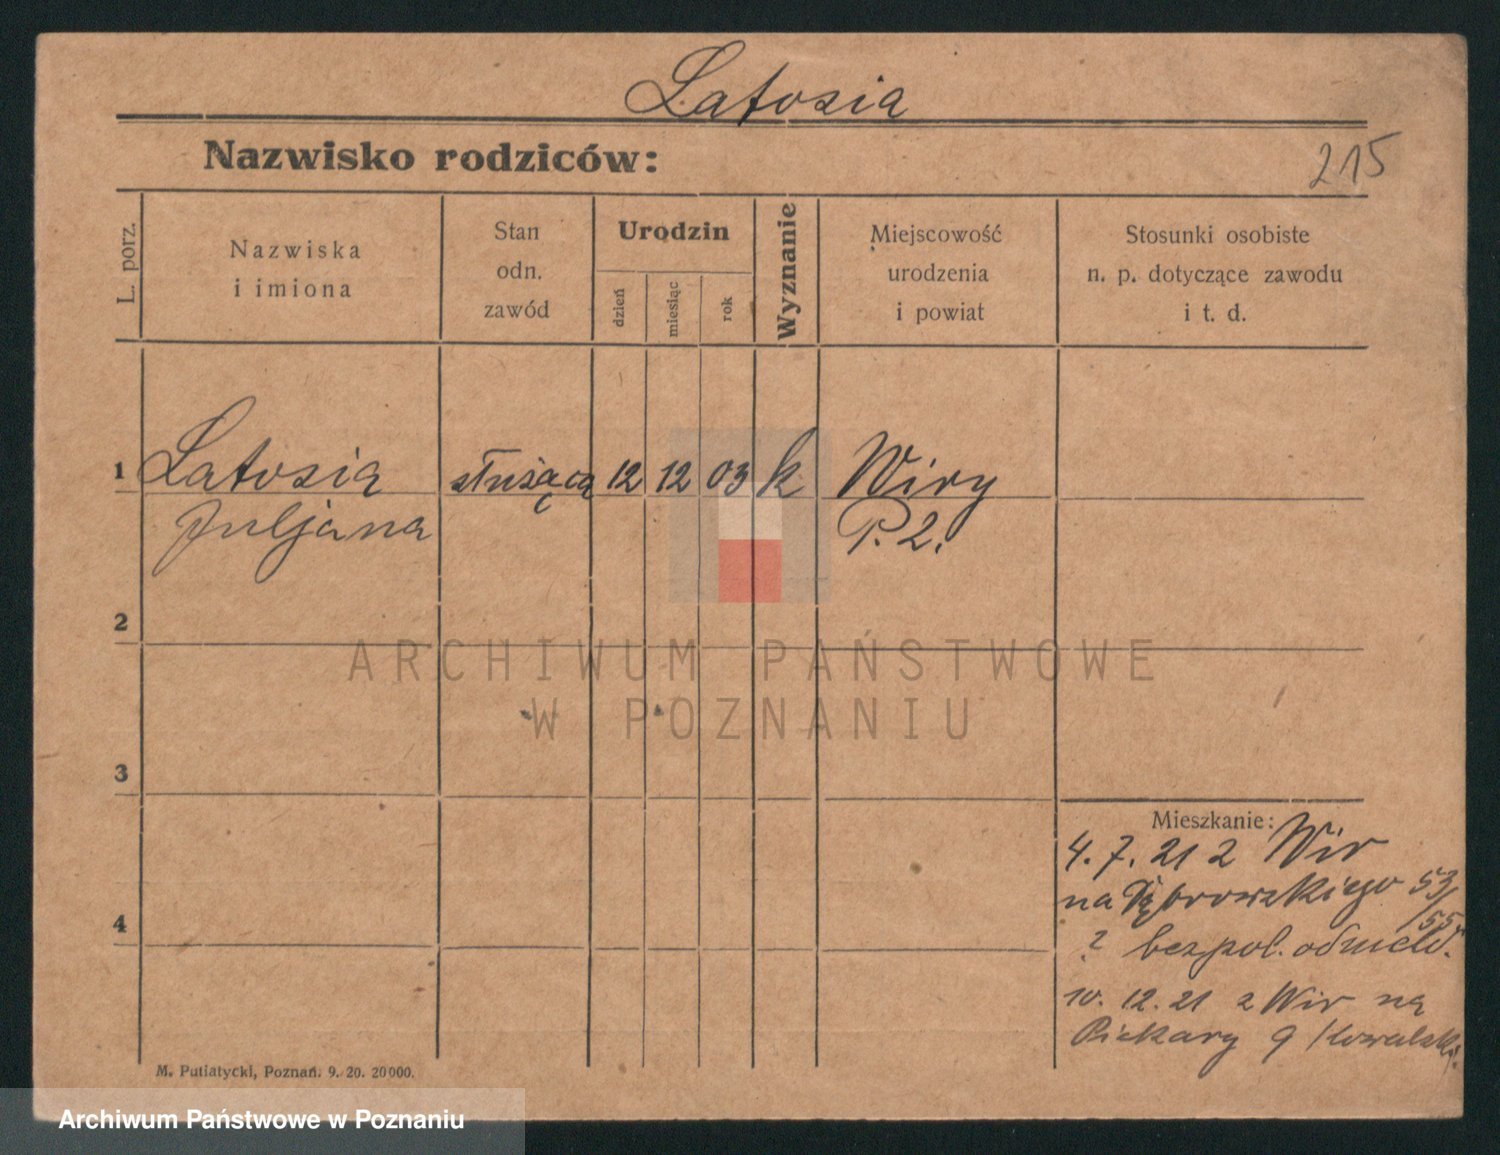 Latosia
Nazwisko rodziców:
215
L. porz.
Nazwiska
i imiona
Stan
odn.
zawód
Urodzin
dzień
miesiąc
rok
Wyznanie
Miejscowość
urodzenia
i powiat
Stosunki osobiste
n. p. dotyczące zawodu
i t. d.
1
Latosia służąca 12 12 03 k Wiry
Juljana P. 2.
2
ARCHIWUM PAŃSTWOWE
W POZNANIU
3
Mieszkanie:
4. 7. 21 z Wir
na Dąbrowskiego 53/
55
4
? bez pol. odmeld.
10. 12. 21 z Wir na
Piekary 9 / Kowalski
M. Putiatycki, Poznań. 9. 20. 20000.
Archiwum Państwowe w Poznaniu